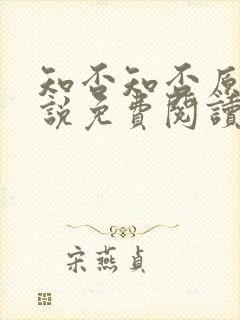 知否知否原
說免費閱讀
宋燕貞